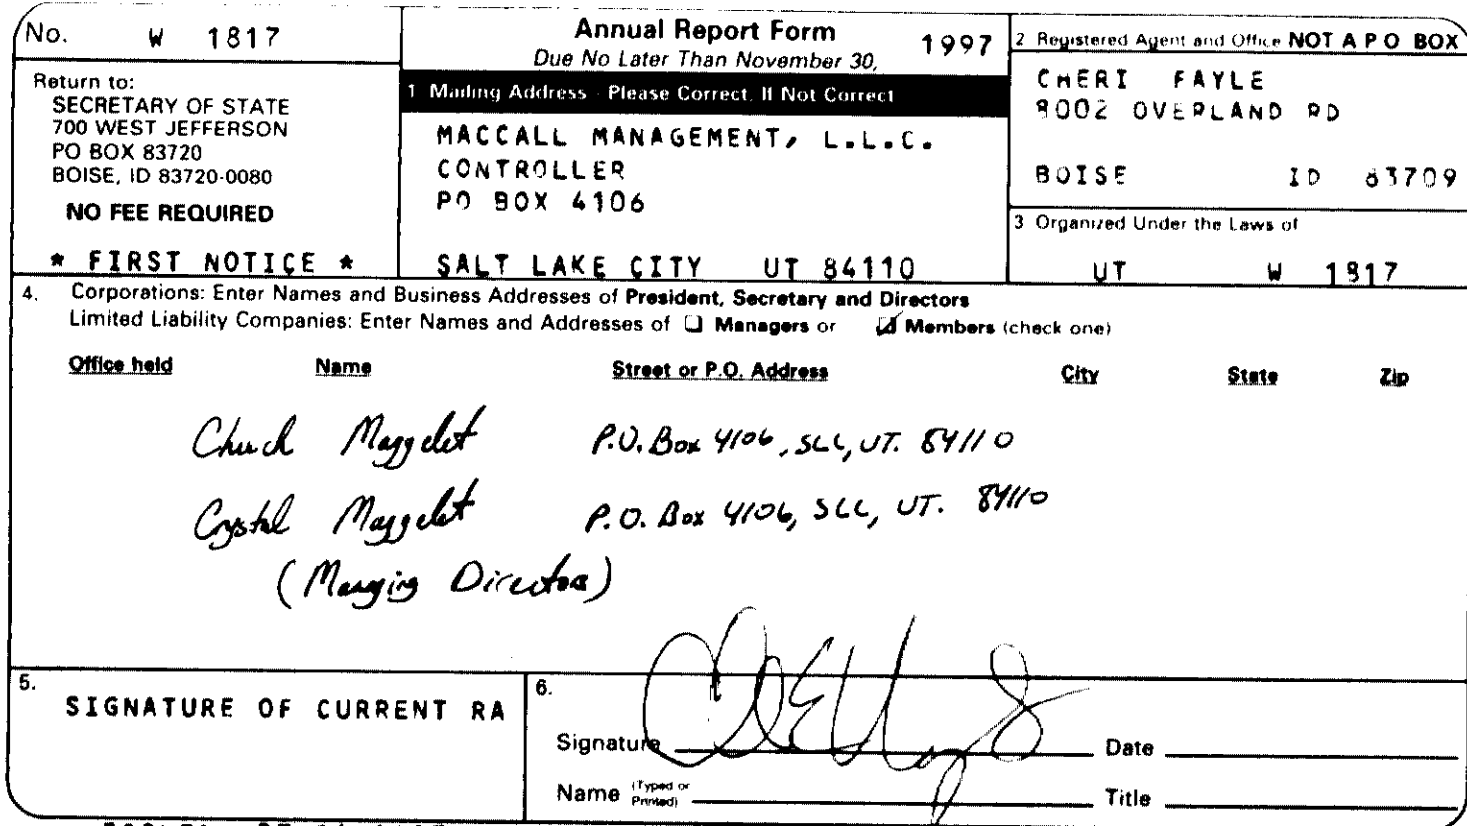 No. W 1817
Return to:
SECRETARY OF STATE
700 WEST JEFFERSON
PO BOX 83720
BOISE, ID 83720-0080
NO FEE REQUIRED
* FIRST NOTICE *
Annual Report Form 1997
Due No Later Than November 30,
1 Mailing Address - Please Correct, If Not Correct
MACCALL MANAGEMENT, L.L.C.
CONTROLLER
PO BOX 4106
SALT LAKE CITY UT 84110
2 Registered Agent and Office NOT A P O BOX
CHERI FAYLE
9002 OVERLAND RD
BOISE ID 83709
3 Organized Under the Laws of
UT W 1817
4. Corporations: Enter Names and Business Addresses of President, Secretary and Directors
Limited Liability Companies: Enter Names and Addresses of ☐ Managers or ☑ Members (check one)
Office held Name Street or P.O. Address City State Zip
Chuck Maggelet P.O. Box 4106, SLC, UT. 84110
Crystal Maggelet P.O. Box 4106, SLC, UT. 84110
(Managing Directors)
5. SIGNATURE OF CURRENT RA
6.
Signature Date
Name (Typed or Printed) Title